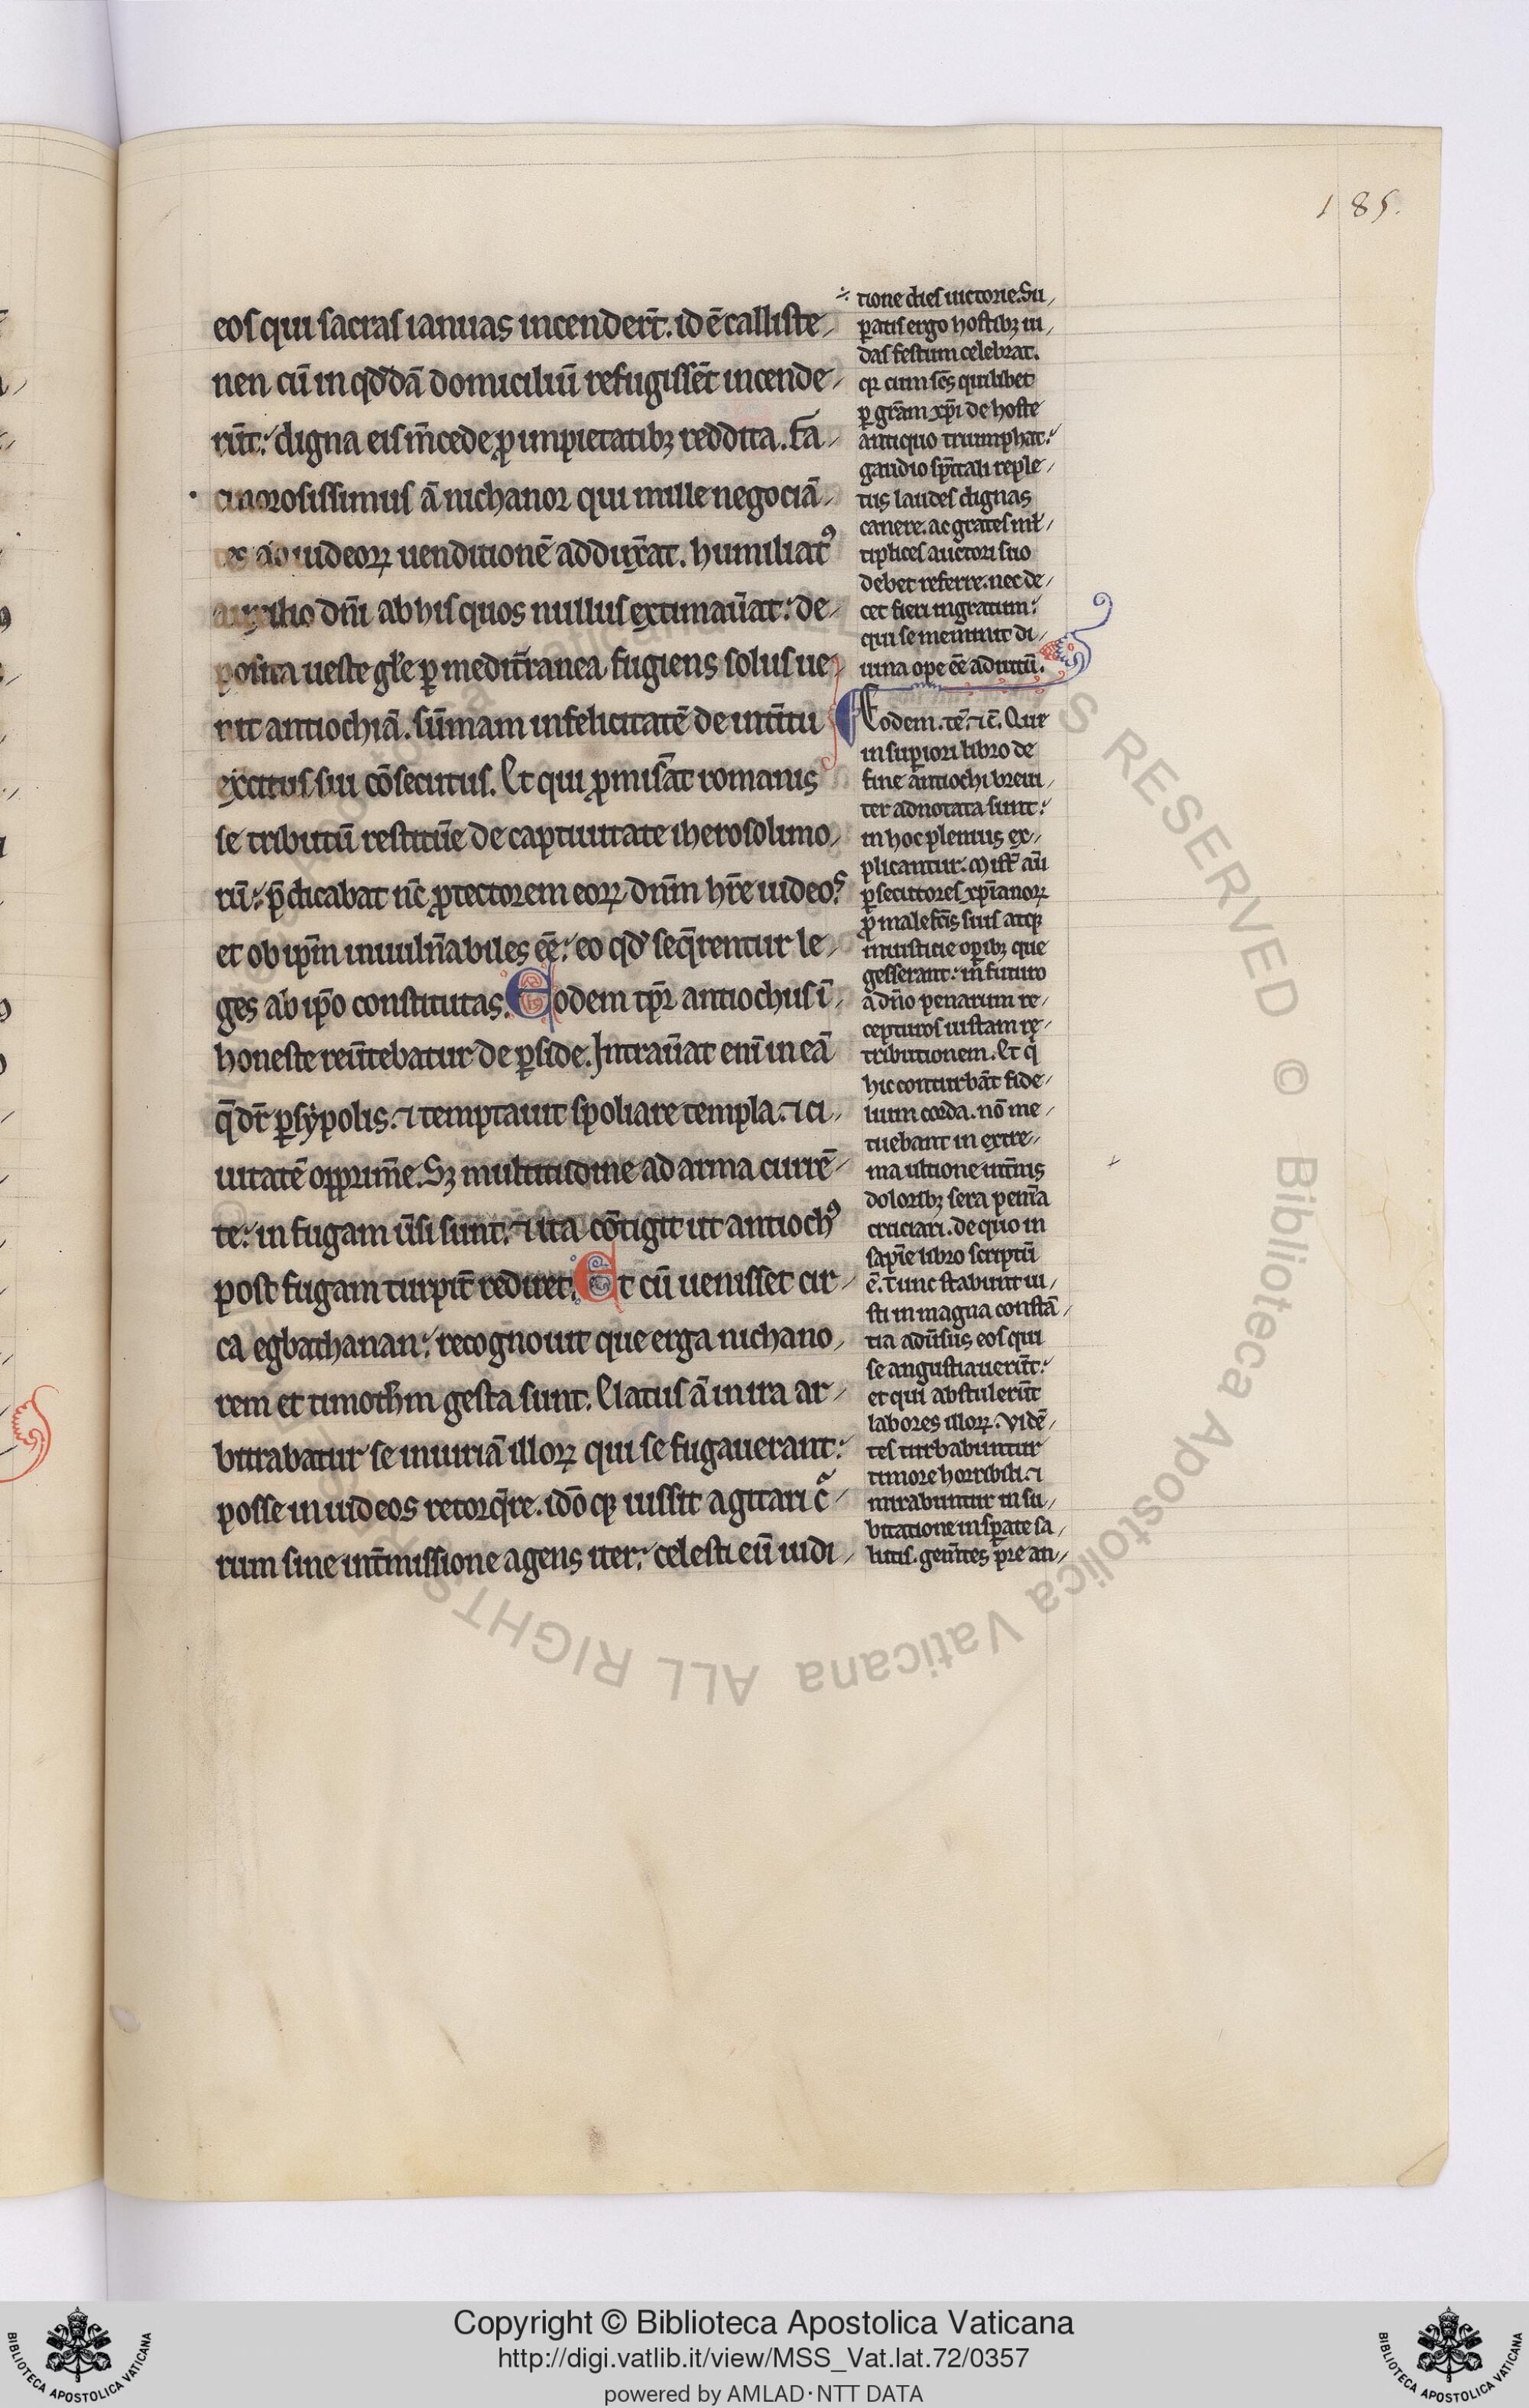 185.
eos qui sacras ianuas incenderr̄t. id ē calliste
nen cū in qd̓dā domiciliū refugissēt incende
rūt: digna eis m̄cede ꝓ impietatibꝫ reddita. Fa
cinorosissimus ā nichanor qui mille negociā
tes ad iudeoꝝ uenditionē addux̄at. humiliatꝰ
auxilio dn̄i ab his quos nullus extimau̅at: de
posita ueste gl̄e ꝑ medit̄ranea fugiens solus ue
nit antiochiā. sūmam infelicitatē de int̄itu
excitus sui cōsecutus. Et qui ꝓmisāt romanis
se tributū restitūe de captiuitate iherosolimo
rū: p̄dicabat nc̄ ꝓtectorem eoꝝ dn̄m hr̄e iudeos
et ob ip̄m inuuln̄abiles ēē: eo qd̓ seq̄rentur le
ges ab ip̄o constitutas. Eodem tp̄r antiochus ī
honeste reūtebatur de ꝑside. Intrau̅at enī in eā
q̄ dr̄ ꝑsẏpolis. ⁊ temptauit spoliare templa. ⁊ ci
uitatē opprim̄e. Sꝫ multitudine ad arma currē
te: in fugam ūsi sunt. ⁊ ita cōtigit ut antiochꝰ
post fugam turpit̄ rediret. Et cū uenisset cir
ca egbathanan: recognouit que erga nichano
rem et timoth̄m gesta sunt. Elatus ā in ira ar
bitrabatur se iniuriā illoꝝ qui se fugauerant:
posse in iudeos retorq̄re. idōqꝫ iussit agitari c̄
rum sine int̄missione agens iter: celesti eū iudi
÷ tione dies uictorie. Su
ꝑatis ergo hostibꝫ iu
das festum celebrat.
qꝛ cum sēs quilibet
ꝑ grām xp̄i de hoste
antiquo triumphat:
gaudio sp̄itali reple
tus laudes dignas
canere. ac grates ml̄
tiplices auctori suo
debet referre. nec de
cet fieri ingratum:
qui se meminit di
uina ope ēē adiutū.
Eodem. tē. ⁊ c̄. Que
in suꝑiori libro de
fine antiochi breui
ter adnotata sunt:
in hoc plenius ex
plicantur.
ꝑsecutores xp̄ianoꝝ
ꝓ malefc̄is suis atqꝫ
iniusticie oꝑibꝫ que
gesserant: in futuro
a dn̄o penarum re
cepturos iustam re
tributionem. Et q̄
hic conturbāt fide
lium corda. nō me
tuebant in extre
ma ultione int̄nis
doloribꝫ sera penīa
cruciari. de quo in
sapīe libro scriptū
ē. Tunc stabunt iu
sti in magna constā
tia adūsus eos qui
se angustiauerūt:
et qui abstulerūt
labores illoꝝ. Vidē
tes turbabuntur
timore horribili. ⁊
mirabuntur in su
bitatione insꝑate sa
lutis. gem̄tes p̄re an
Copyright © Biblioteca Apostolica Vaticana
http://digi.vatlib.it/view/MSS_Vat.lat.72/0357
powered by AMLAD·NTT DATA